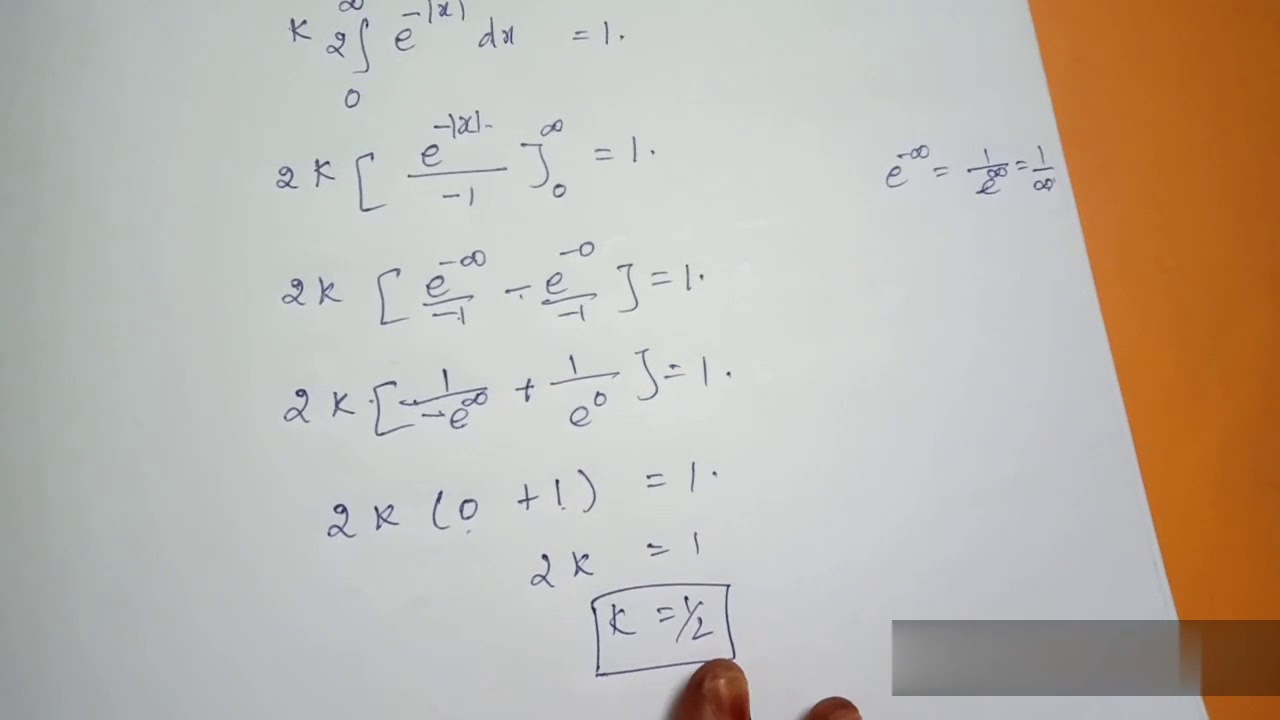 ∞
K 2∫ e^{-|x|} dx = 1.
0
2K [ e^{-|x|}/-1 ]_0^∞ = 1.
e^{-∞} = 1/e^∞ = 1/∞
2K [ e^{-∞}/-1 - e^{-0}/-1 ] = 1.
2K [ 1/-e^∞ + 1/e^0 ] = 1.
2K (0 + 1) = 1.
2K = 1
K = 1/2